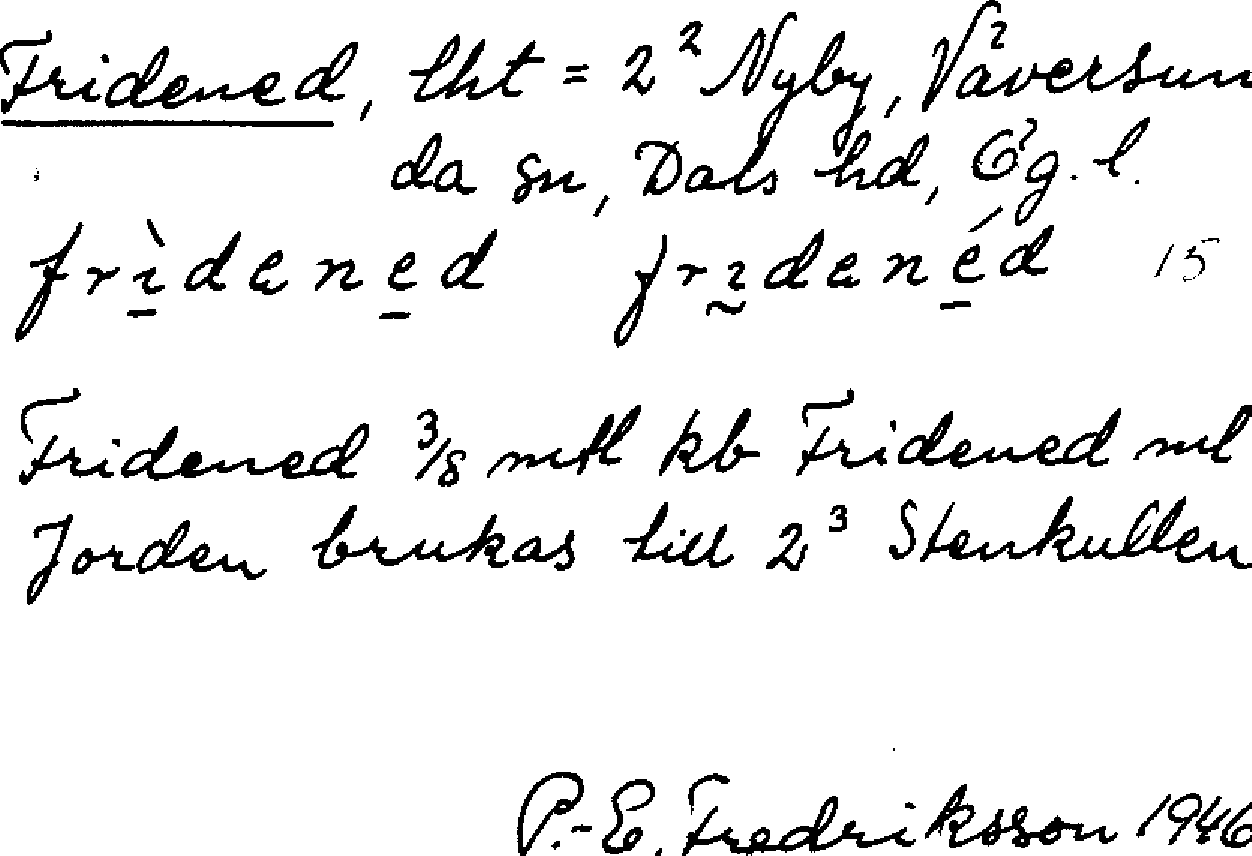 Fridened, lht = 2² Nyby, Väversun
da sn, Dals hd, Ög. l.
frìdened fridenéd 15
Fridened 3/8 mtl kb Fridened ml
Jorden brukas till 2³ Stenkullen
P.-E. Fredriksson 1946